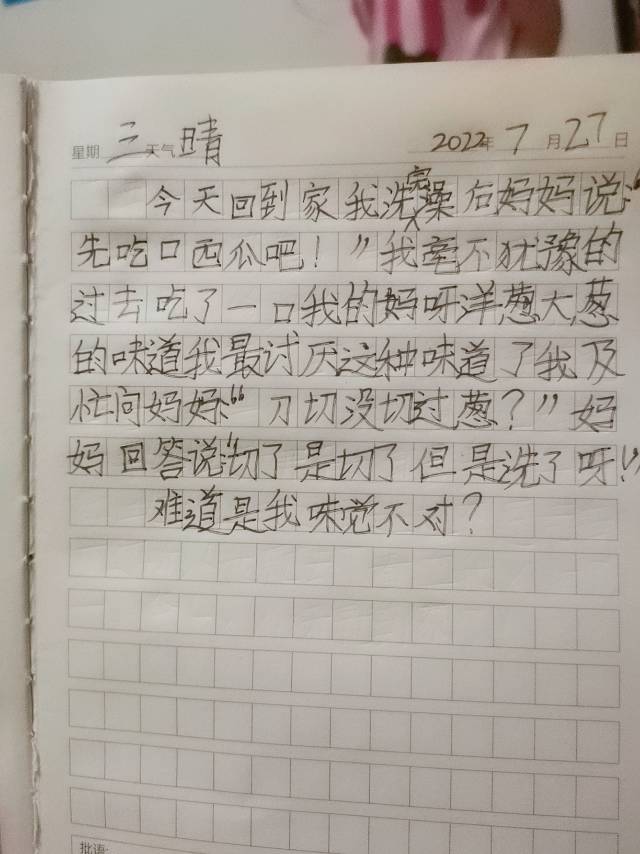 星期 三 天气 晴 2022年 7月27日
今天回到家我洗完澡后妈妈说:“
先吃口西瓜吧!”我毫不犹豫的
过去吃了一口我的妈呀洋葱大葱
的味道我最讨厌这种味道了我及
忙问妈妈:“刀切没切过葱?”妈
妈回答说“切了是切了但是洗了呀!”
难道是我味觉不对?
批语: